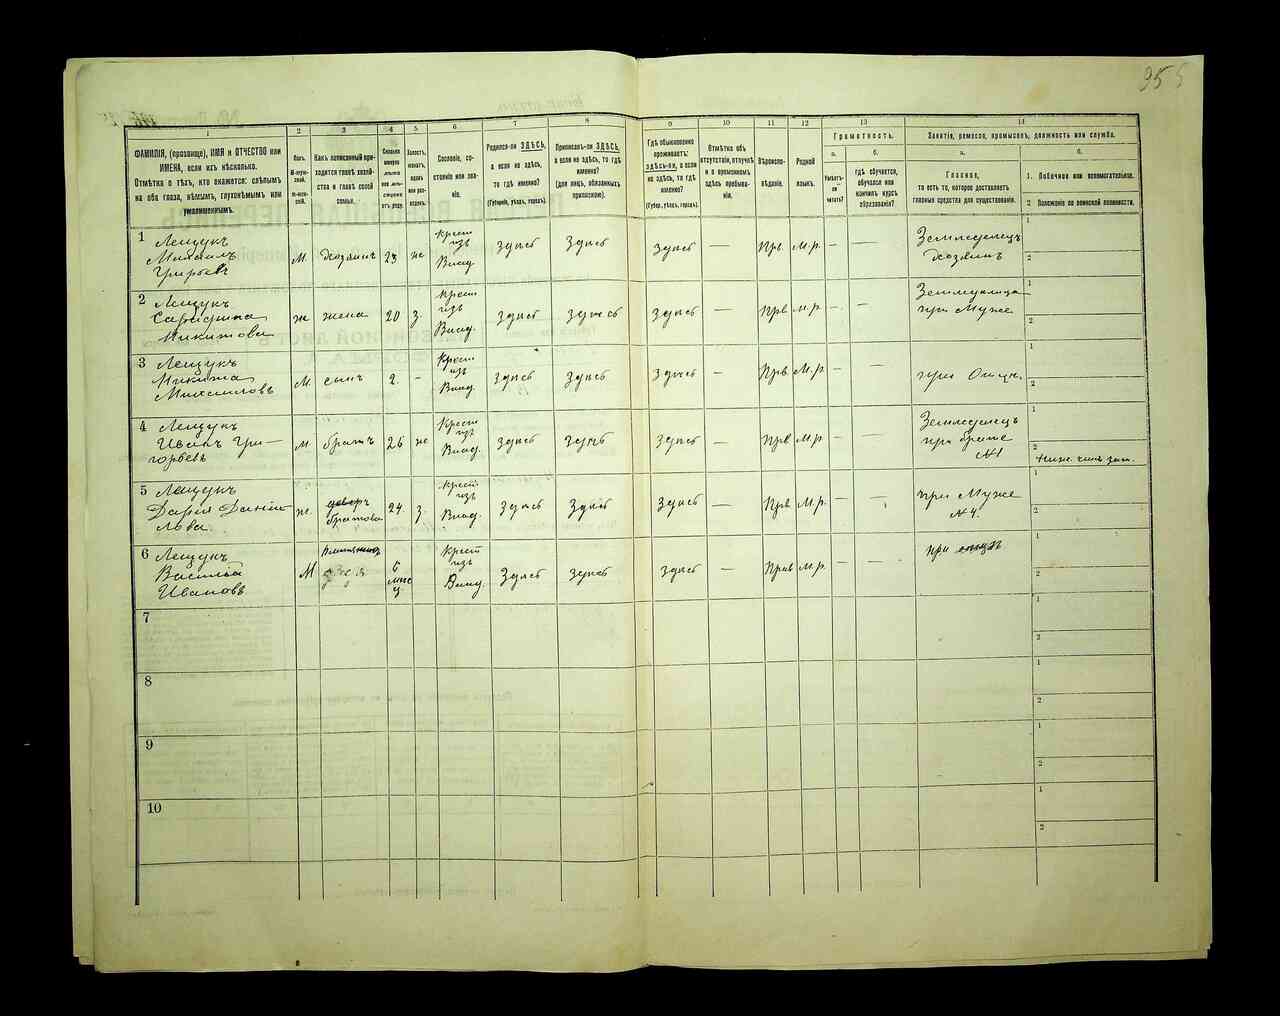 95
1
2
3
4
5
6
7
8
9
10
11
12
13
14
ФАМИЛІЯ, (прозвище), ИМЯ и ОТЧЕСТВО или
ИМЕНА, если ихъ нѣсколько.
Отмѣтка о тѣхъ, кто окажется: слѣпымъ
на оба глаза, нѣмымъ, глухонѣмымъ или
умалишеннымъ.
Полъ.
М-муж-
ской.
Ж-жен-
скій.
Какъ записанный при-
ходится главѣ хозяй-
ства и главѣ своей
семьи.
Сколько
минуло
лѣтъ
или мѣс-
отъ роду.
Холостъ,
женатъ,
вдовъ
или раз-
веденъ.
Сословіе, со-
стояніе или зва-
ніе.
Родился-ли ЗДѢСЬ,
а если не здѣсь,
то гдѣ именно?
(Губернія, уѣздъ, городъ).
Приписанъ-ли ЗДѢСЬ,
а если не здѣсь, то гдѣ
именно?
(для лицъ, обязанныхъ
припискою).
Гдѣ обыкновенно
проживаетъ:
ЗДѢСЬ-ли, а если
не здѣсь, то гдѣ
именно?
(Губер., уѣздъ, городъ).
Отмѣтка объ
отсутствіи, отлучкѣ
и о временномъ
здѣсь пребыва-
ніи.
Вѣроиспо-
вѣданіе.
Родной
языкъ.
Грамотность.
а.
Умѣетъ-
ли
читать?
б.
гдѣ обучается,
обучался или
кончилъ курсъ
образованія?
Занятіе, ремесло, промыселъ, должность или служба.
а.
Главное,
то есть то, которое доставляетъ
главныя средства для существованія.
б.
1. Побочное или вспомогательное.
2 Положеніе по воинской повинности.
1 Лещукъ
Михаилъ
Григорьевъ
М. хозяинъ 23 же
Крест
изъ
Влад.
здѣсь здѣсь здѣсь — Прв. М.р. — —
Земледѣлецъ
хозяинъ
1
2
2 Лещукъ
Никитова
ж жена 20 з.
Крест
изъ
Влад.
здѣсь здѣсь здѣсь — Прв М.р. — —
при Муже
1
2
3 Лещукъ
Никита
Михаиловъ
М. сынъ 2. —
Крест
изъ
Влад.
здѣсь здѣсь здѣсь — Прв. М.р. — —
при Отцѣ.
1
2
4 Лещукъ
Иванъ Гри-
горьевъ
М братъ 26 же
Крест
изъ
Влад.
здѣсь здѣсь здѣсь — Прв М.р. — —
Земледѣлецъ
при братѣ
№1
1
2
Ниж. чинъ зап.
5 Лещукъ
Дарія Данiи
лова
ж.
братова
24 з.
Крест
изъ
Влад.
здѣсь здѣсь здѣсь — Прв М.р. — —
при Муже
№4.
1
2
6 Лещукъ
Василій
Ивановъ
М
6
мѣс
ц.
Крест
изъ
Влад.
здѣсь здѣсь здѣсь — Прав М.р. — —
при отцѣ
1
2
7
1
2
8
1
2
9
1
2
10
1
2